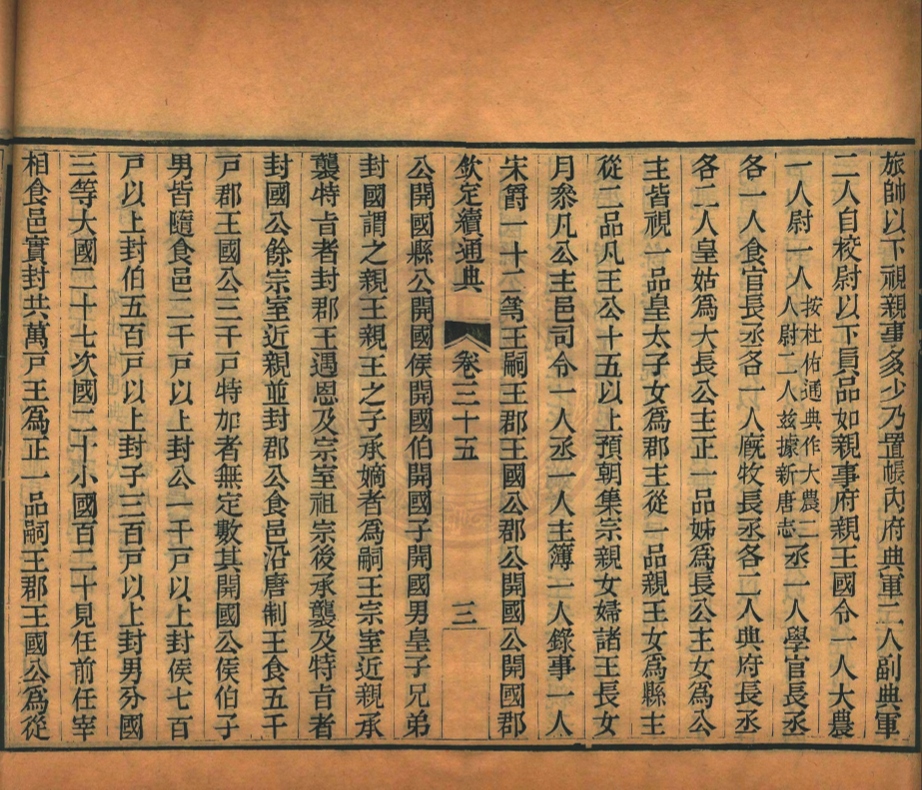 旅帥以下視親事多少乃置帳內府典軍二人副典軍
二人自校尉以下員品如親事府親王國令一人大農
一人尉一人按杜佑通典作大農二人尉二人兹據新唐志丞一人學官長丞
各一人食官長丞各一人廐牧長丞各二人典府長丞
各二人皇姑爲大長公主正一品姊爲長公主女爲公
主皆視一品皇太子女爲郡主從一品親王女爲縣主
從二品凡王公十五以上預朝集宗親女婦諸王長女
月叅凡公主邑司令一人丞一人主簿一人錄事一人
宋爵一十二等王嗣王郡王國公郡公開國公開國郡
欽定續通典 卷三十五 三
公開國縣公開國侯開國伯開國子開國男皇子兄弟
封國謂之親王親王之子承嫡者爲嗣王宗室近親承
襲特旨者封郡王遇恩及宗室祖宗後承襲及特旨者
封國公餘宗室近親並封郡公食邑沿唐制王食五千
戸郡王國公三千戸特加者無定數其開國公侯伯子
男皆隨食邑二千戸以上封公一千戸以上封侯七百
戸以上封伯五百戸以上封子三百戸以上封男分國
三等大國二十七次國二十小國百二十見任前任宰
相食邑實封共萬戸王爲正一品嗣王郡王國公爲從